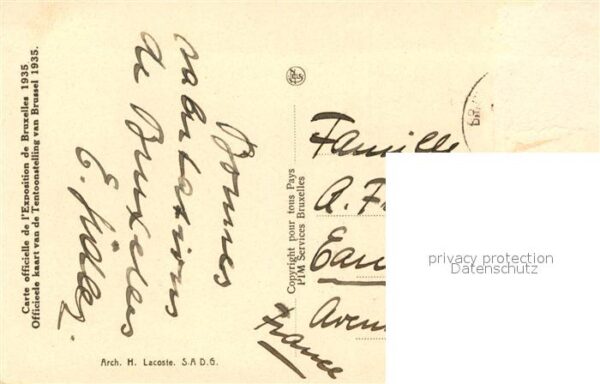 Carte officielle de l'Exposition de Bruxelles 1935
Officieele kaart van de Tentoonstelling van Brussel 1935.
Bonnes
salutations
de Bruxelles
Arch. H. Lacoste. S.A.D.G.
Copyright pour tous Pays
PIM Services Bruxelles
Famille
A. F
Eau
Aven
France
privacy protection
Datenschutz